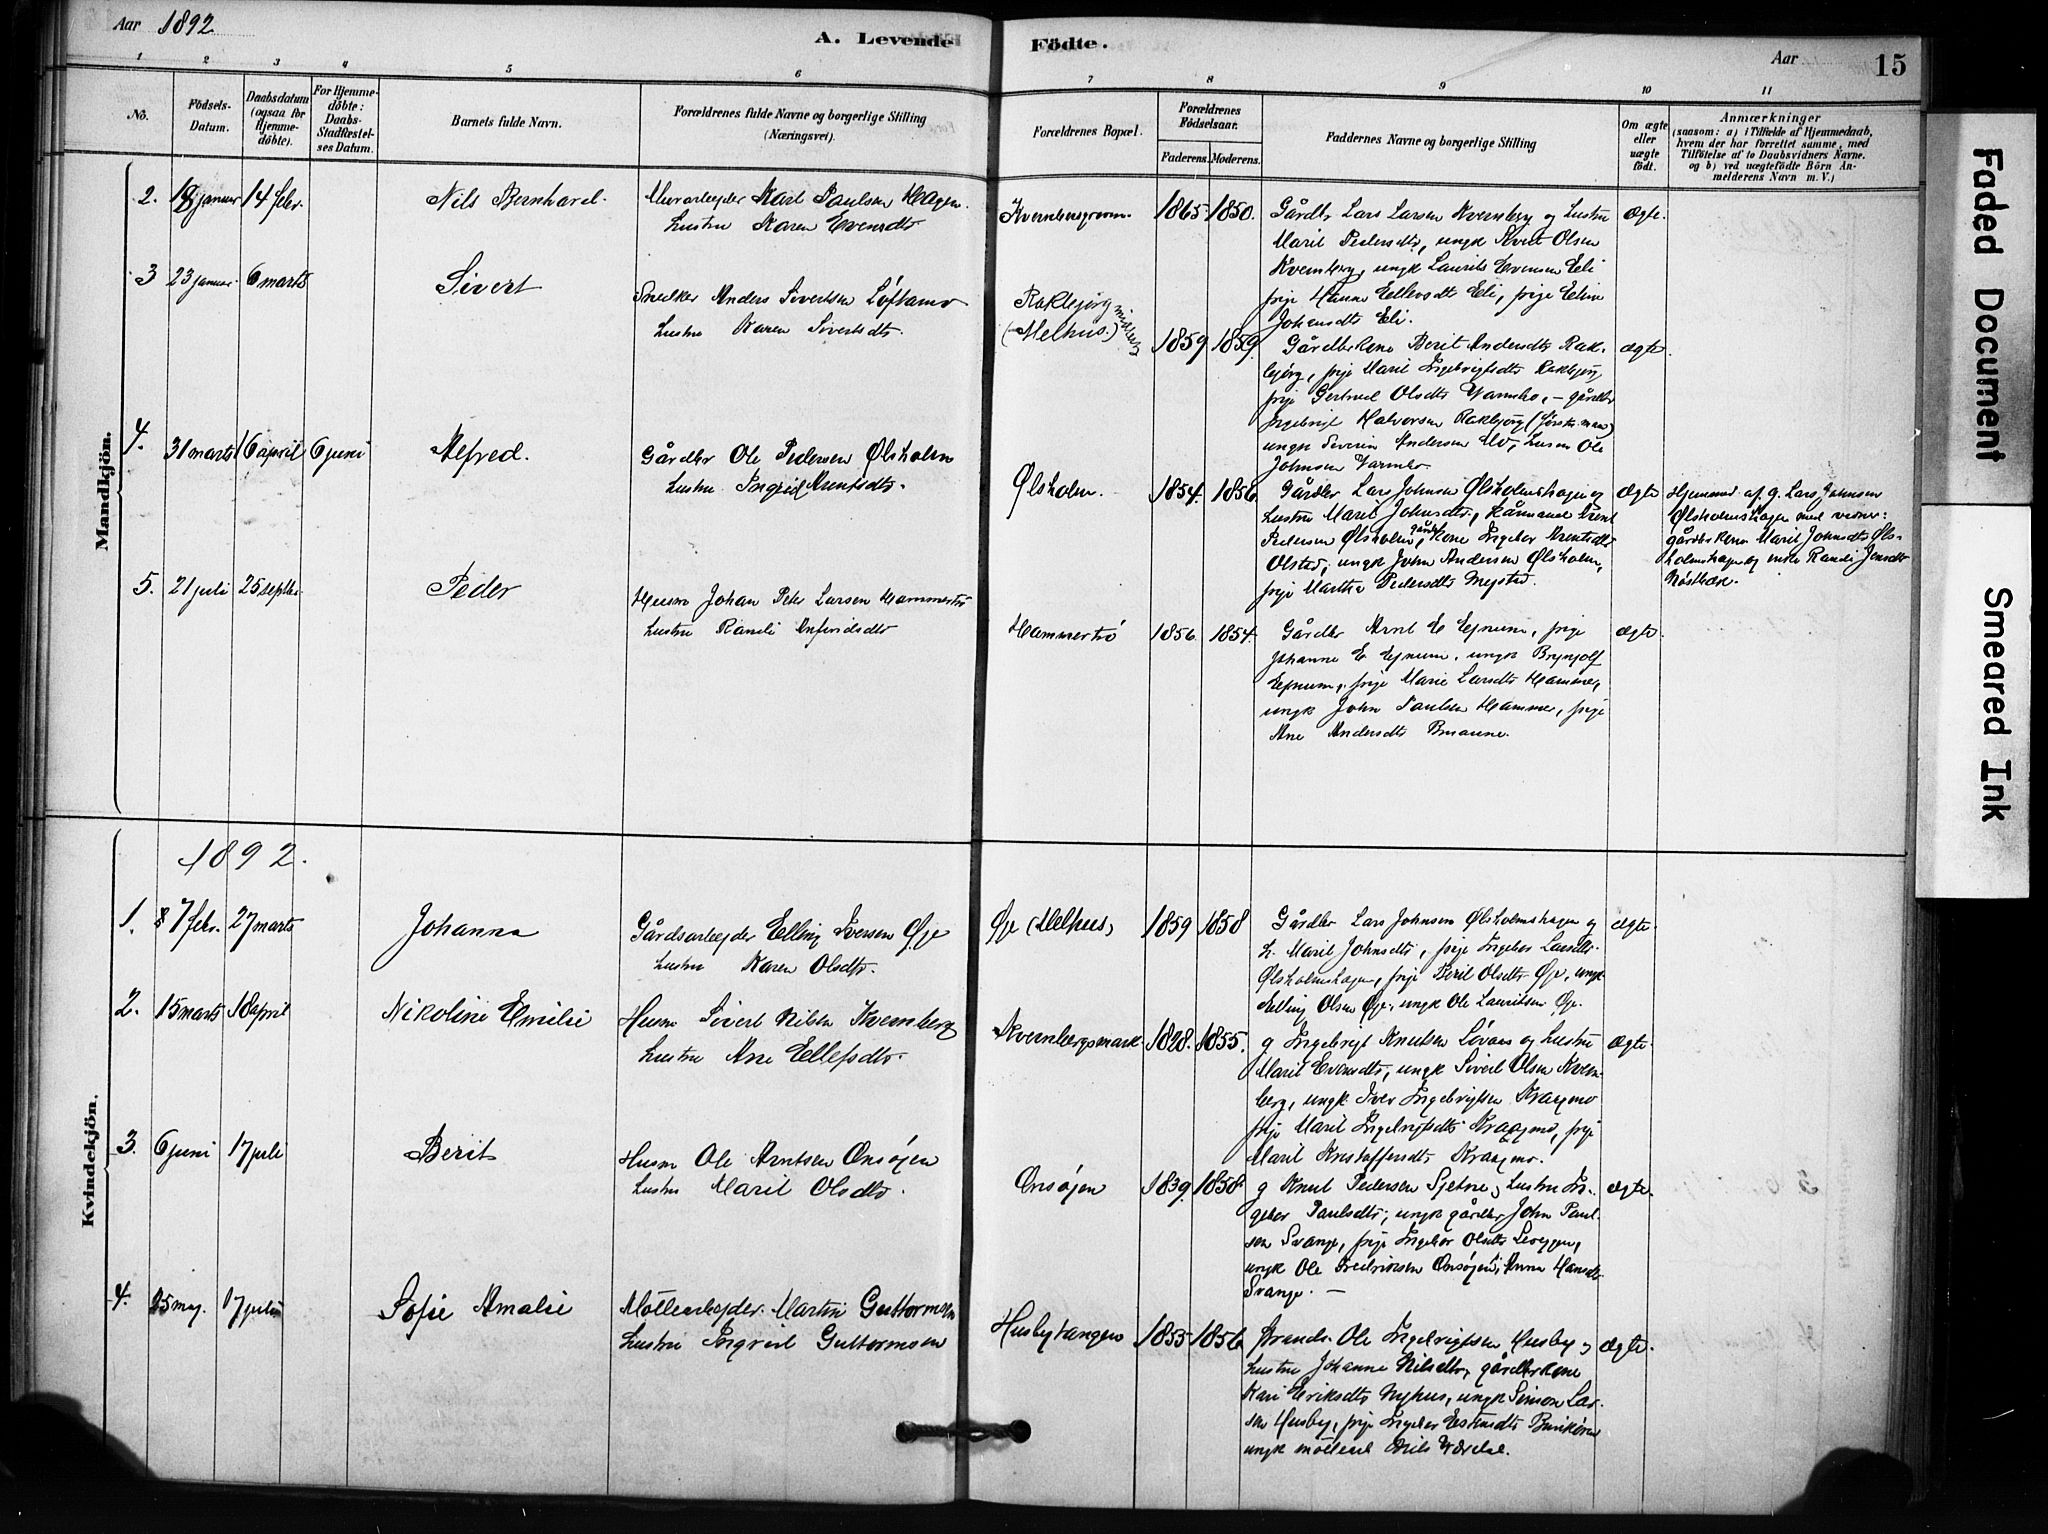 Aar 1892
A. Levende Födte.
Aar 15
1 2 3 4 5 6 7 8 9 10 11
No.
Födsels-Datum.
Daabsdatum (ogsaa for Hjemme-döbte).
For Hjemme-döbte: Daabs-Stadfæstel-ses Datum.
Barnets fulde Navn.
Forældrenes fulde Navne og borgerlige Stilling (Næringsvei).
Forældrenes Bopæl.
Forældrenes Födselsaar.
Faderens. Moderens.
Faddernes Navne og borgerlige Stilling
Om ægte eller uægte födt.
Anmærkninger
(saasom: a) i Tilfælde af Hjemmedaab, hvem der har forrettet samme, med Tilföielse af to Daabsvidners Navne. og b) ved uægtefödte Börn An-melderens Navn m. V.)
Mandkjön.
2. 18 januar 14 febr. Nils Bernhard.
Murarbejder Karl Paulsen Hagen
Hustru Karen Evensdtr
1865 1850.
Gårdbr Lars Larsen Kvernberg og Hustru
Marit Pedersdtr, ungk Sivert Olsen
Kvernberg, ungk Laurits Evensen Eli
pige Hanna Ellevsdtr Eli, pige Eline
Johansdtr Eli.
Ægte.
3 23 januar 6 marts Sivert
Snedker Anders Sivertsen Løftamo
Hustru Karen Sivertsdtr.
Rakbjørg
(Melhus.)
1859 1859.
Gårdbrkone Berit Andersdtr Rak-
bjørg, pige Marit Ingebrigtsdtr Rakbjørg
pige Gertrud Olsdtr Varmbo, - gårdbr
Ingebrigt Halvorsen Rakbjørg
ungk Severin Andersen
Johnsen Varmbo.
ægte.
4. 31 marts 16 april 6 juni Alfred.
Gårdbr Ole Pedersen Ølsholm
Hustru Ingrid Arntsdtr.
Ølsholm. 1854. 1856
Gårdbr Lars Johnsen Ølsholmshagen og
Hustru Marit Johnsdtr, Kårmand Arnt
Pedersen Ølsholm, gårdbr Kone Ingebor Arntsdtr
Olstad, ungk John Andersen Ølsholm,
pige Martha Pedersdtr Mejstad.
Ægte
Hjemmed. af g. Lars Johnsen
Ølsholmshagen med vidner:
gårdbrkone Marit Johnsdtr Øls-
holmshagen og enke Randi Jensdtr
Nøstbæk.
5. 21 juli 25 septbr. Peder
Husm Johan Peter Larsen Hammertrø
Hustru Randi Anfindsdtr
Hammertrø 1856. 1854.
Gårdbr Arnt E Ejnum, pige
Johanna E Ejnum, ungk Brynjolf
Ejnum, pige Marie Larsdtr Hammer,
ungk John Paulsen Hammer, pige
Ane Andersdtr Bruaune.
ægte
Kvindekjön.
1892.
1. 7 febr. 27 marts Johanna
Gårdsarbejder Elling Iversen Øje
Hustru Karen Olsdtr.
Øje (Melhus) 1859 1858
Gårdbr Lars Johnsen Ølsholmshagen og
H. Marit Johnsdtr, pige Ingebor Larsdtr
Ølsholmshagen, pige Berit Olsdtr Øje, ungk
Elling Olsen Øje, ungk Ole Lauritsen Øje.
ægte.
2. 15 marts 18 april Nikoline Emilie
Husm Sivert Nilsen Kvernberg
Hustru Ane Ellefsdtr.
Kvernbergsmark 1828. 1855.
g Ingebrigt Knutsen Løvaas og Hustru
Marit Evensdtr, ungk Sivert Olsen Kvern-
berg, ungk Iver Ingebrigtsen Kraagmo
pige Marit Ingebrigtsdtr Kraagmo, pige
Marit Kristoffersdtr Kraagmo.
Ægte.
3. 6 juni 17 juli Berit
Husm Ole Arntsen Onsøjen
Hustru Marit Olsdtr.
Onsøjen 1839. 1858.
g Knut Pedersen Sjetne, Hustru In-
gebor Paulsdtr, ungk gårdbr John Paul-
sen Svange, pige Ingebor Olsdtr Leveggen,
ungk Ole Fredriksen Onsøjen, Anna Hansdtr
Svange. -
ægte.
4. 25 maj. 17 juli Sofie Amalie
Møllearbejder. Martin Guttormsen
Hustru Ingrid Guttormsen
Husbytangen 1855 1856
Strands. Ole Ingebrigtsen Husby og
Hustru Johanna Nilsdtr, gårdbrkone
Kari Eriksdtr Nyhus, ungk Simon Lar-
sen Husby, pige Ingebor Estensdtr
ungk møllearb Nils
ægte.
Faded Document
Smeared Ink